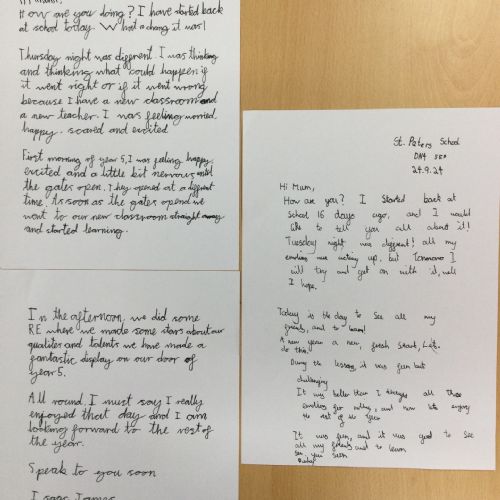 How are you doing? I have started back
at school today. What a chang it was!
Thursday night was different. I was thinking
and thinking what could happen if
it went right or if it went wrong
because I have a new classroom and
a new teacher. I was feeling worried
happy, scared and excited
First morning of year 5, I was feeling happy,
excited and a little bit nervous, until
the gates open. They opened at a different
time. As soon as the gates opend we
went to our new classroom straight away
and started learning.
In the afternoon, we did some
RE where we made some stars about our
qualites and talents we have made a
fantastic display on our door of
year 5.
All round, I must say I really
enjoyed that day and I am
looking forward to the rest of
the year.
Speak to you soon
St. Peters School
DH4
24.9.24
Hi Mum,
How are you? I Started back at
school 16 days ago, and I would
like to tell you all about it!
Tuesday night was different! all my
emotions were acting up, but Tomorrow I
will try and get on with it, well
I hope.
Today is the day to see all my
friends, and to learn!
A new year a new, fresh start, Let
do this.
During the lessons, it was fun but
challenging
It was better than I thought all those
emotions for nothing, and now lets enjoy
the rest of the
It was fun, and it was good to see
all my friends and to learn
see you soon